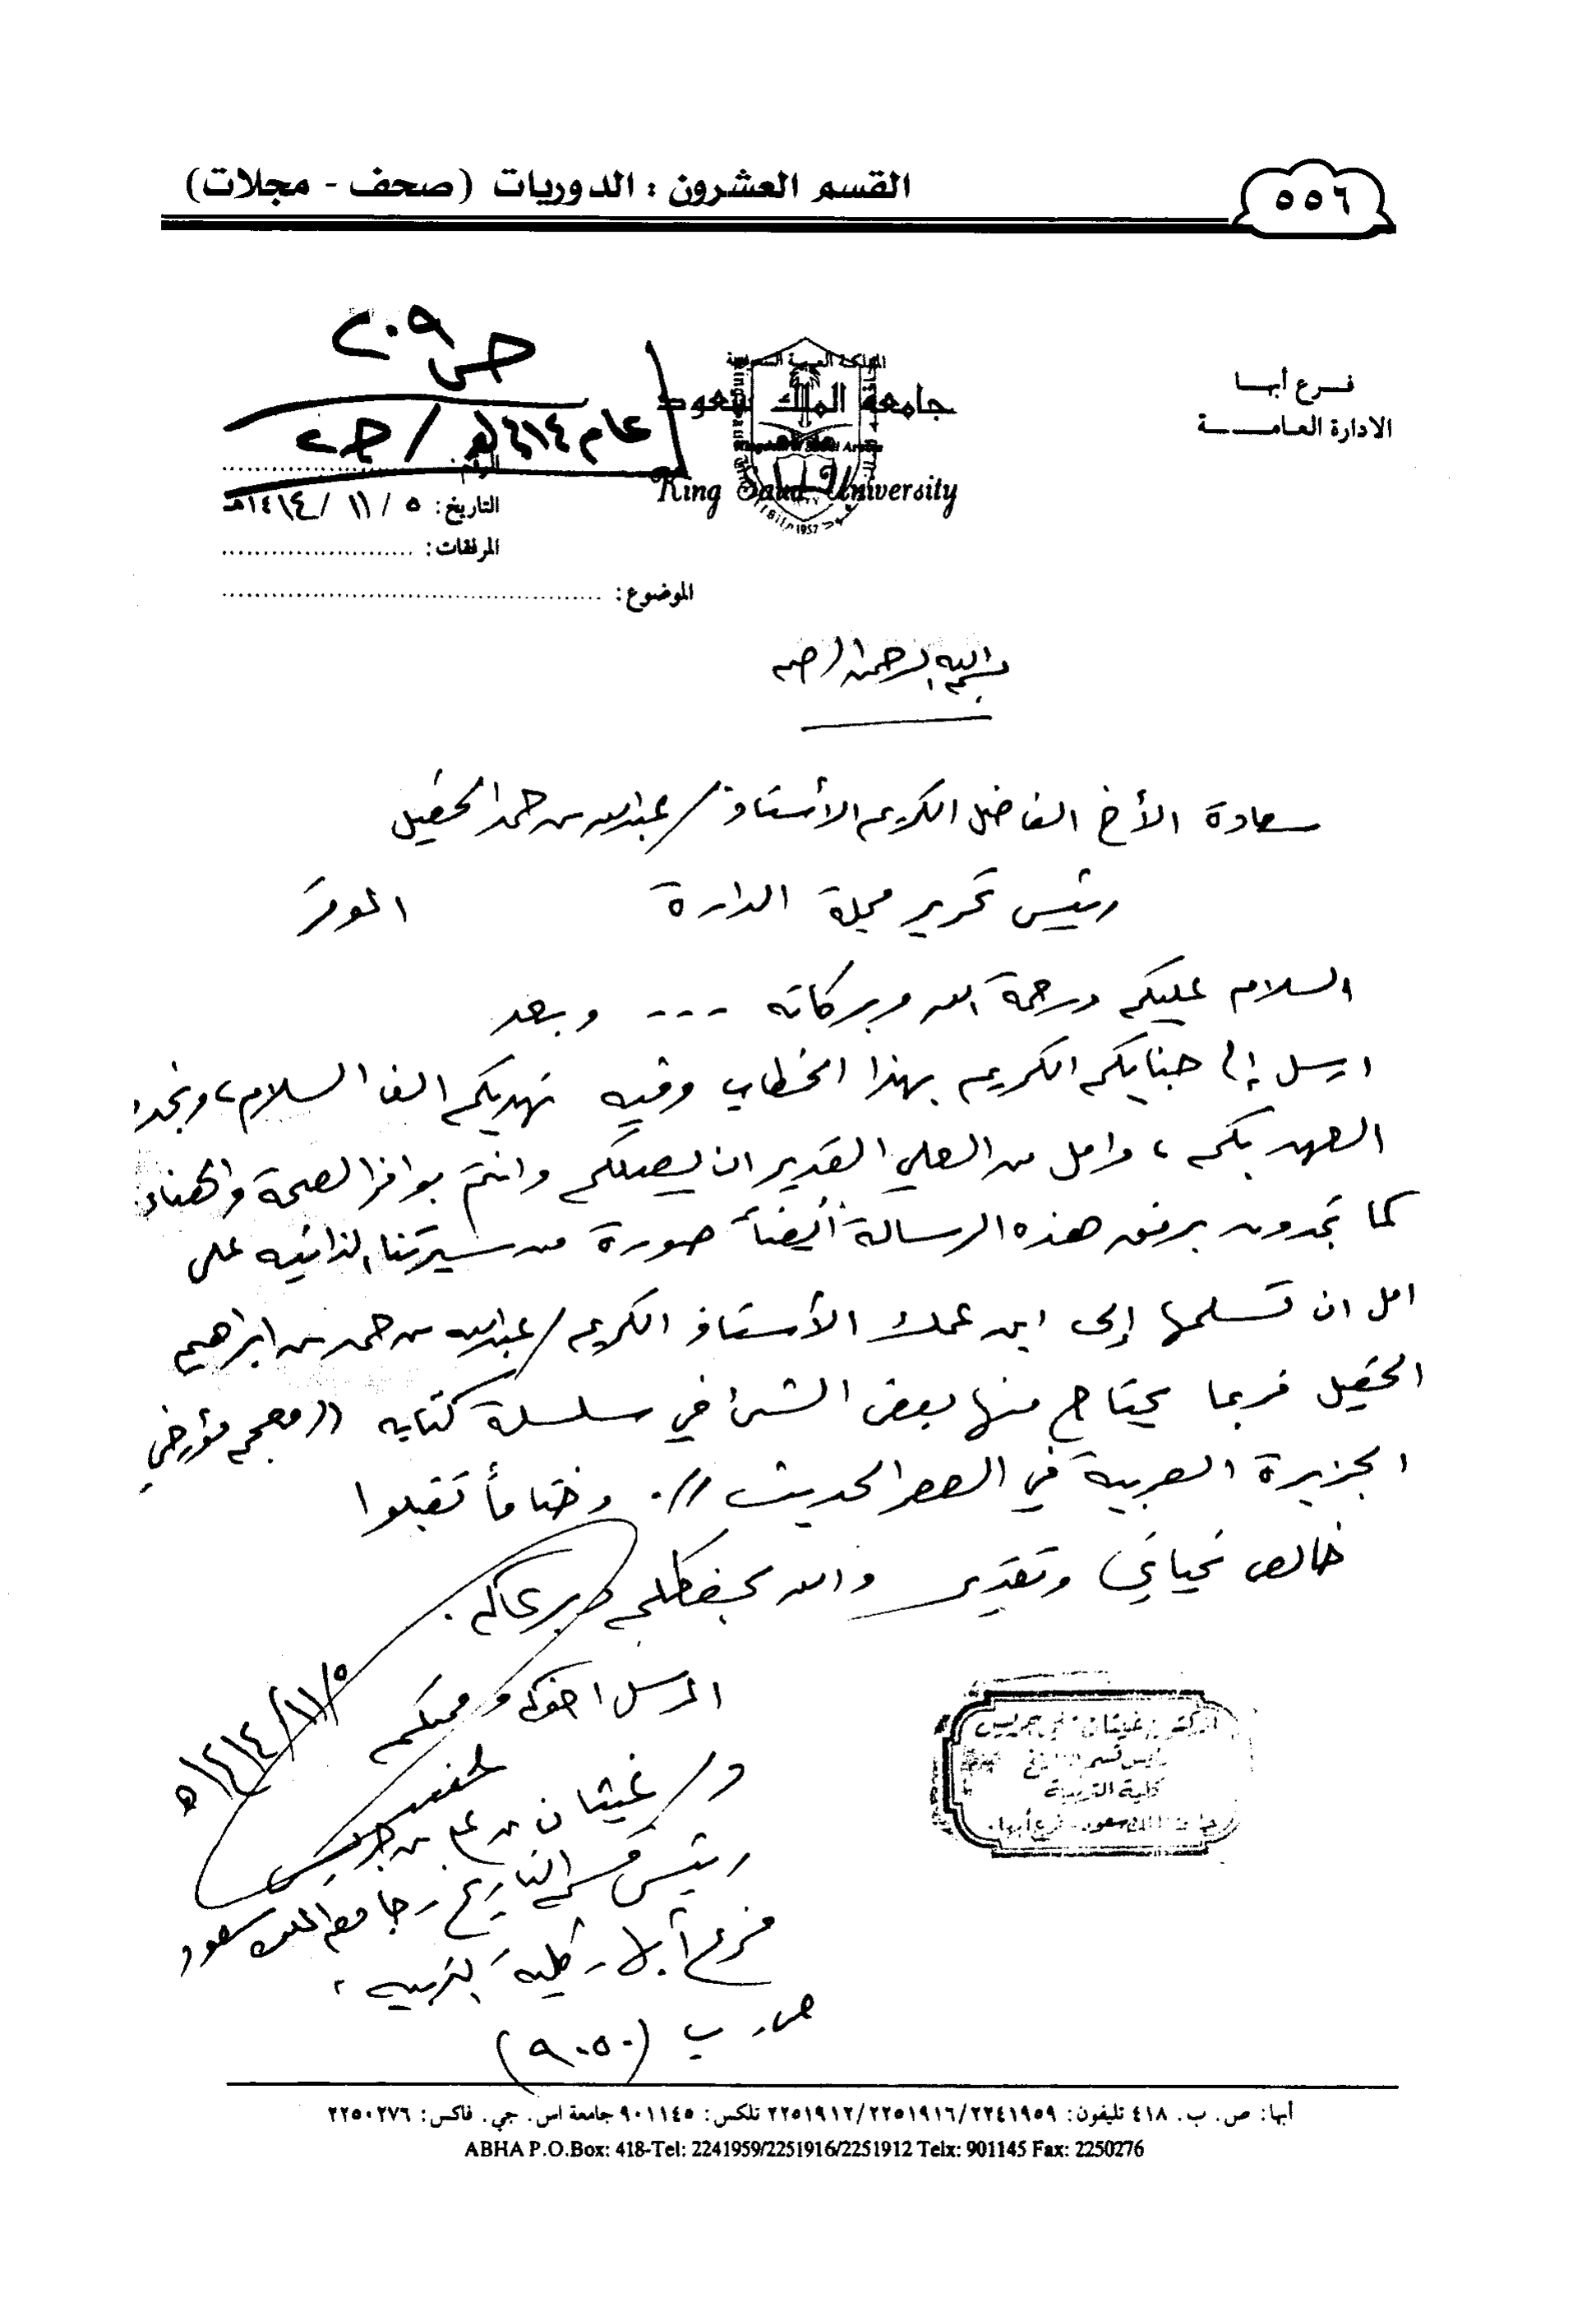 القسم العشرون : الدوريات (صحف - مجلات)
٥٥٦
فرع أبها
الادارة العامة
المملكة العربية السعودية
جامعة الملك سعود
King Saud University
1957
ص ٢٠٩
عام ١٤١٤هـ / ج٢
الرقم:
التاريخ: ٥ / ١١ / ١٤١٤هـ
المرفقات:
الموضوع:
بسم الله الرحمن الرحيم
سعادة الأخ الفاضل الكريم الأستاذ / عبدالله بن حمد الحقيل
رئيس تحرير مجلة الدارة الموقر
السلام عليكم ورحمة الله وبركاته --- وبعد
ارسل إلى جنابكم الكريم بهذا الخطاب وفيه نهديكم الف السلام، ونجدد
العهد بكم، وامل من العلي القدير ان يصلكم وانتم بوافر الصحة والهناء،
كما تجدون برفق هذه الرسالة أيضاً صورة من سيرتنا الذاتيه على
امل ان تسلمها إلى ابن عمك الأستاذ الكريم / عبدالله بن حمد بن ابراهيم
الحقيل فربما يحتاج منها بعض الشئ في سلسلة كتابه ((معجم مؤرخي
الجزيرة العربية في العصر الحديث)). وختاماً تقبلوا
خالص تحياتي وتقديري والله يحفظكم ويرعاكم.
المرسل اخوك ومحبكم
٥/١١/١٤١٤هـ
د/ غيثان بن علي بن جريس
رئيس قسم التاريخ - جامعة الملك سعود
فرع أبها - كلية التربيه،
ص. ب (٩٠٥٠)
الدكتور غيثان بن علي جريس
رئيس قسم التاريخ
كلية التربية
جامعة الملك سعود - فرع أبها
أبها: ص. ب. ٤١٨ تليفون: ٢٢٥١٩١٢/٢٢٥١٩١٦/٢٢٤١٩٥٩ تلكس: ٩٠١١٤٥ جامعة اس. جي. فاكس: ٢٢٥٠٢٧٦
ABHA P.O.Box: 418-Tel: 2241959/2251916/2251912 Telx: 901145 Fax: 2250276